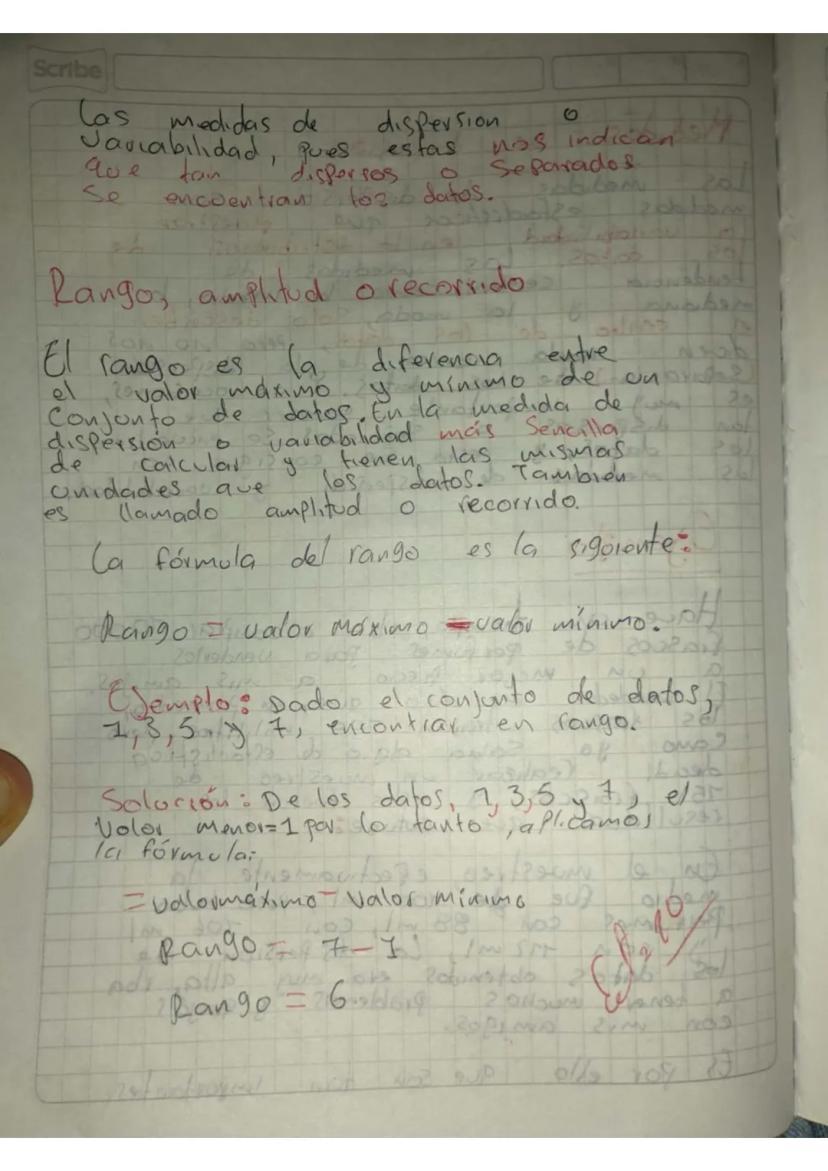 Scribe
Las medidas de dispersion o
variabilidad, pues estas nos indican
que tan dispersos o separados
se encuentran los datos.
Rango, amplitud o recorrido
El rango es la diferencia entre
el valor máximo y mínimo de un
conjunto de datos. En la medida de
dispersión o variabilidad más sencilla
de calcular y tienen las mismas
unidades que los datos. También
es llamado amplitud o recorrido.
La fórmula del rango es la siguiente:
Rango = valor máximo - valor mínimo.
Ejemplo: Dado el conjunto de datos,
1, 3, 5 y 7, encontrar en rango.
Solución: De los datos, 1, 3, 5 y 7, el
Valor menor=1 por lo tanto, aplicamos
la fórmula:
= valor máximo - Valor mínimo
Rango = 7-1
Rango = 6